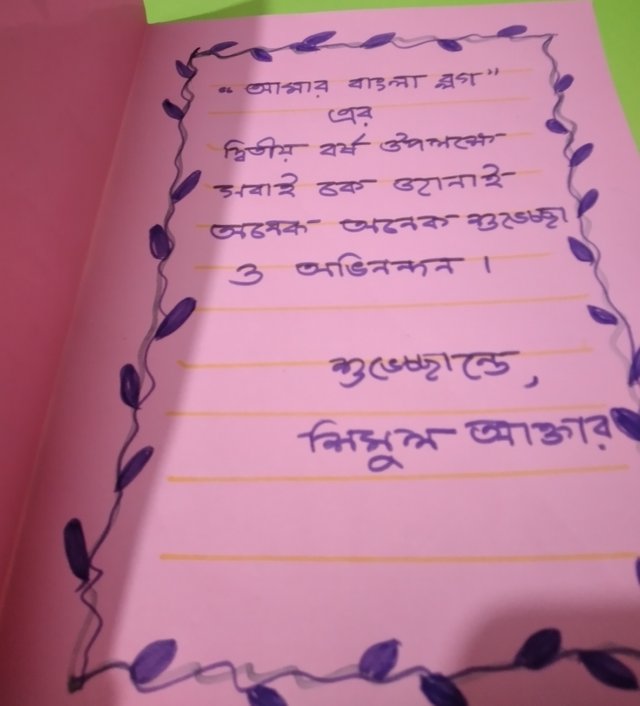 “আমার বাংলা ব্লগ”
এর
দ্বিতীয় বর্ষ উপলক্ষে
সবাই কে জানাই
অনেক অনেক শুভেচ্ছা
ও অভিনন্দন।
শুভেচ্ছান্তে,
শিমুল আক্তার